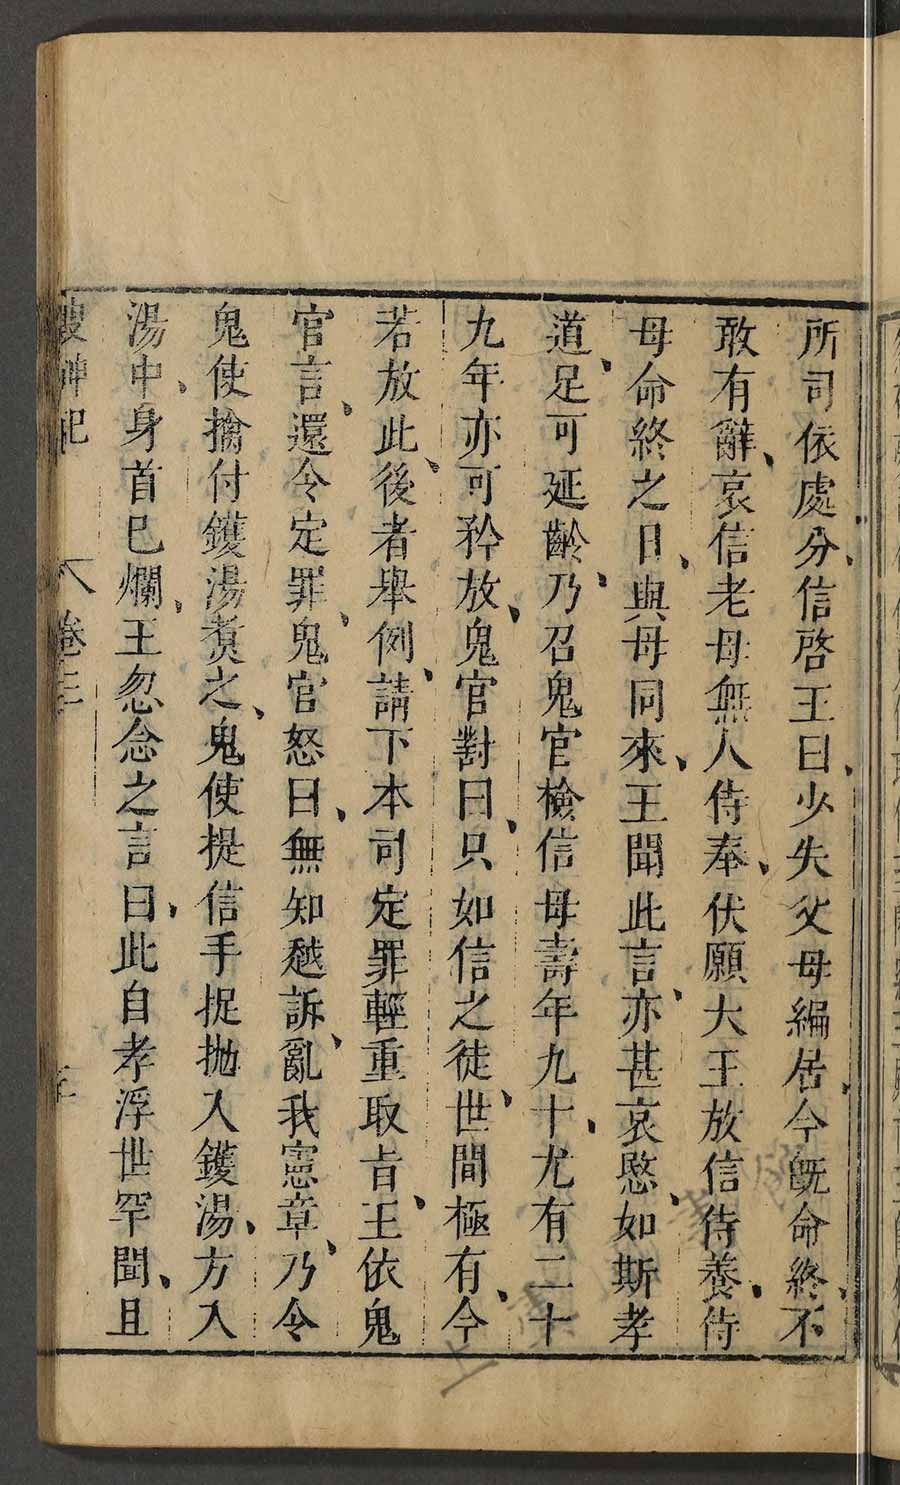 所司依處分信啓王曰少失父母編居今旣命終不
敢有辭哀信老母無人侍奉伏願大王放信侍養待
母命終之日與母同來王聞此言亦甚哀愍如斯孝
道足可延齡乃召鬼官檢信母壽年九十尤有二十
九年亦可矜放鬼官對曰只如信之徒世間極有今
若放此後者舉例請下本司定罪輕重取旨王依鬼
官言還令定罪鬼官怒曰無知愬訴亂我憲章乃令
鬼使擒付鑊湯煑之鬼使提信手捉拋入鑊湯方入
湯中身首已爛王忽念之言曰此自孝浮世罕聞且
搜神記 卷三